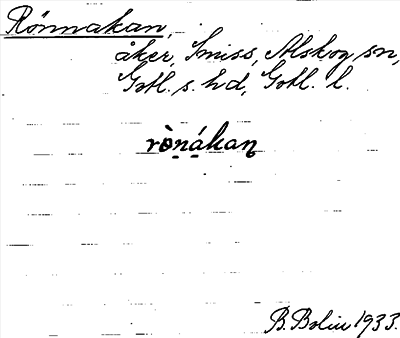 Rönnakan,
åker, Smiss, Alskog sn,
Gotl. s. hd, Gotl. l.
rò̤n̤á̤kan̤
B. Bolin 1933.